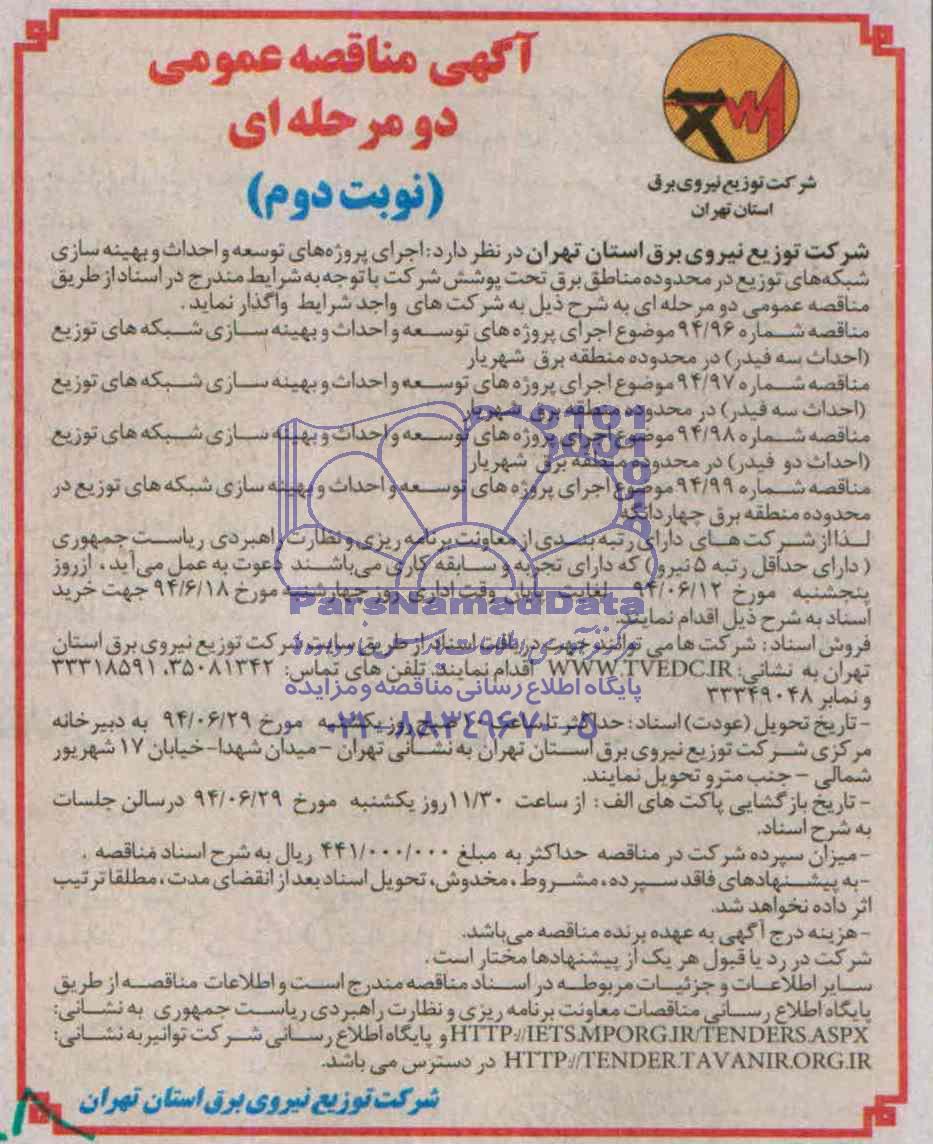 آگهی مناقصه عمومی
دو مرحله ای
(نوبت دوم)
شرکت توزیع نیروی برق
استان تهران
شرکت توزیع نیروی برق استان تهران در نظر دارد: اجرای پروژه‌های توسعه و احداث و بهینه سازی
شبکه‌های توزیع در محدوده مناطق برق تحت پوشش شرکت با توجه به شرایط مندرج در اسناد از طریق
مناقصه عمومی دو مرحله ای به شرح ذیل به شرکت های واجد شرایط واگذار نماید.
مناقصه شماره ۹۴/۹۶ موضوع اجرای پروژه های توسعه و احداث و بهینه سازی شبکه های توزیع
(احداث سه فیدر) در محدوده منطقه برق شهریار
مناقصه شماره ۹۴/۹۷ موضوع اجرای پروژه های توسعه و احداث و بهینه سازی شبکه های توزیع
(احداث سه فیدر) در محدوده منطقه برق شهریار
مناقصه شماره ۹۴/۹۸ موضوع اجرای پروژه های توسعه و احداث و بهینه سازی شبکه های توزیع
(احداث دو فیدر) در محدوده منطقه برق شهریار
مناقصه شماره ۹۴/۹۹ موضوع اجرای پروژه های توسعه و احداث و بهینه سازی شبکه های توزیع در
محدوده منطقه برق چهاردانگه
لذا از شرکت های دارای رتبه بندی از معاونت برنامه ریزی و نظارت راهبردی ریاست جمهوری
(دارای حداقل رتبه ۵ نیرو) که دارای تجربه و سابقه کاری می‌باشند دعوت به عمل می‌آید، از روز
پنجشنبه مورخ ۹۴/۰۶/۱۲ لغایت پایان وقت اداری روز چهارشنبه مورخ ۹۴/۶/۱۸ جهت خرید
اسناد به شرح ذیل اقدام نمایند.
فروش اسناد: شرکت ها می توانند جهت دریافت اسناد از طریق سایت شرکت توزیع نیروی برق استان
تهران به نشانی: WWW.TVEDC.IR اقدام نمایند. تلفن های تماس: ۳۵۰۸۱۳۴۲، ۳۳۳۱۸۵۹۱
و نمابر ۳۳۳۴۹۰۴۸
- تاریخ تحویل (عودت) اسناد: حداکثر تا ساعت ۱۰ صبح روز یکشنبه مورخ ۹۴/۰۶/۲۹ به دبیرخانه
مرکزی شرکت توزیع نیروی برق استان تهران به نشانی تهران - میدان شهدا - خیابان ۱۷ شهریور
شمالی - جنب مترو تحویل نمایند.
- تاریخ بازگشایی پاکت های الف: از ساعت ۱۱/۳۰ روز یکشنبه مورخ ۹۴/۰۶/۲۹ در سالن جلسات
به شرح اسناد.
- میزان سپرده شرکت در مناقصه حداکثر به مبلغ ۴۴۱/۰۰۰/۰۰۰ ریال به شرح اسناد مناقصه.
- به پیشنهادهای فاقد سپرده، مشروط، مخدوش، تحویل اسناد بعد از انقضای مدت، مطلقا ترتیب
اثر داده نخواهد شد.
- هزینه درج آگهی به عهده برنده مناقصه می‌باشد.
شرکت در رد یا قبول هر یک از پیشنهادها مختار است.
سایر اطلاعات و جزئیات مربوطه در اسناد مناقصه مندرج است و اطلاعات مناقصه از طریق
پایگاه اطلاع رسانی مناقصات معاونت برنامه ریزی و نظارت راهبردی ریاست جمهوری به نشانی:
HTTP://IETS.MPORG.IR/TENDERS.ASPX و پایگاه اطلاع رسانی شرکت توانیر به نشانی:
HTTP://TENDER.TAVANIR.ORG.IR در دسترس می باشد.
شرکت توزیع نیروی برق استان تهران
ParsNamadData
پایگاه اطلاع رسانی مناقصه و مزایده
۰۲۱-۸۸۳۴۹۶۷۰-۵